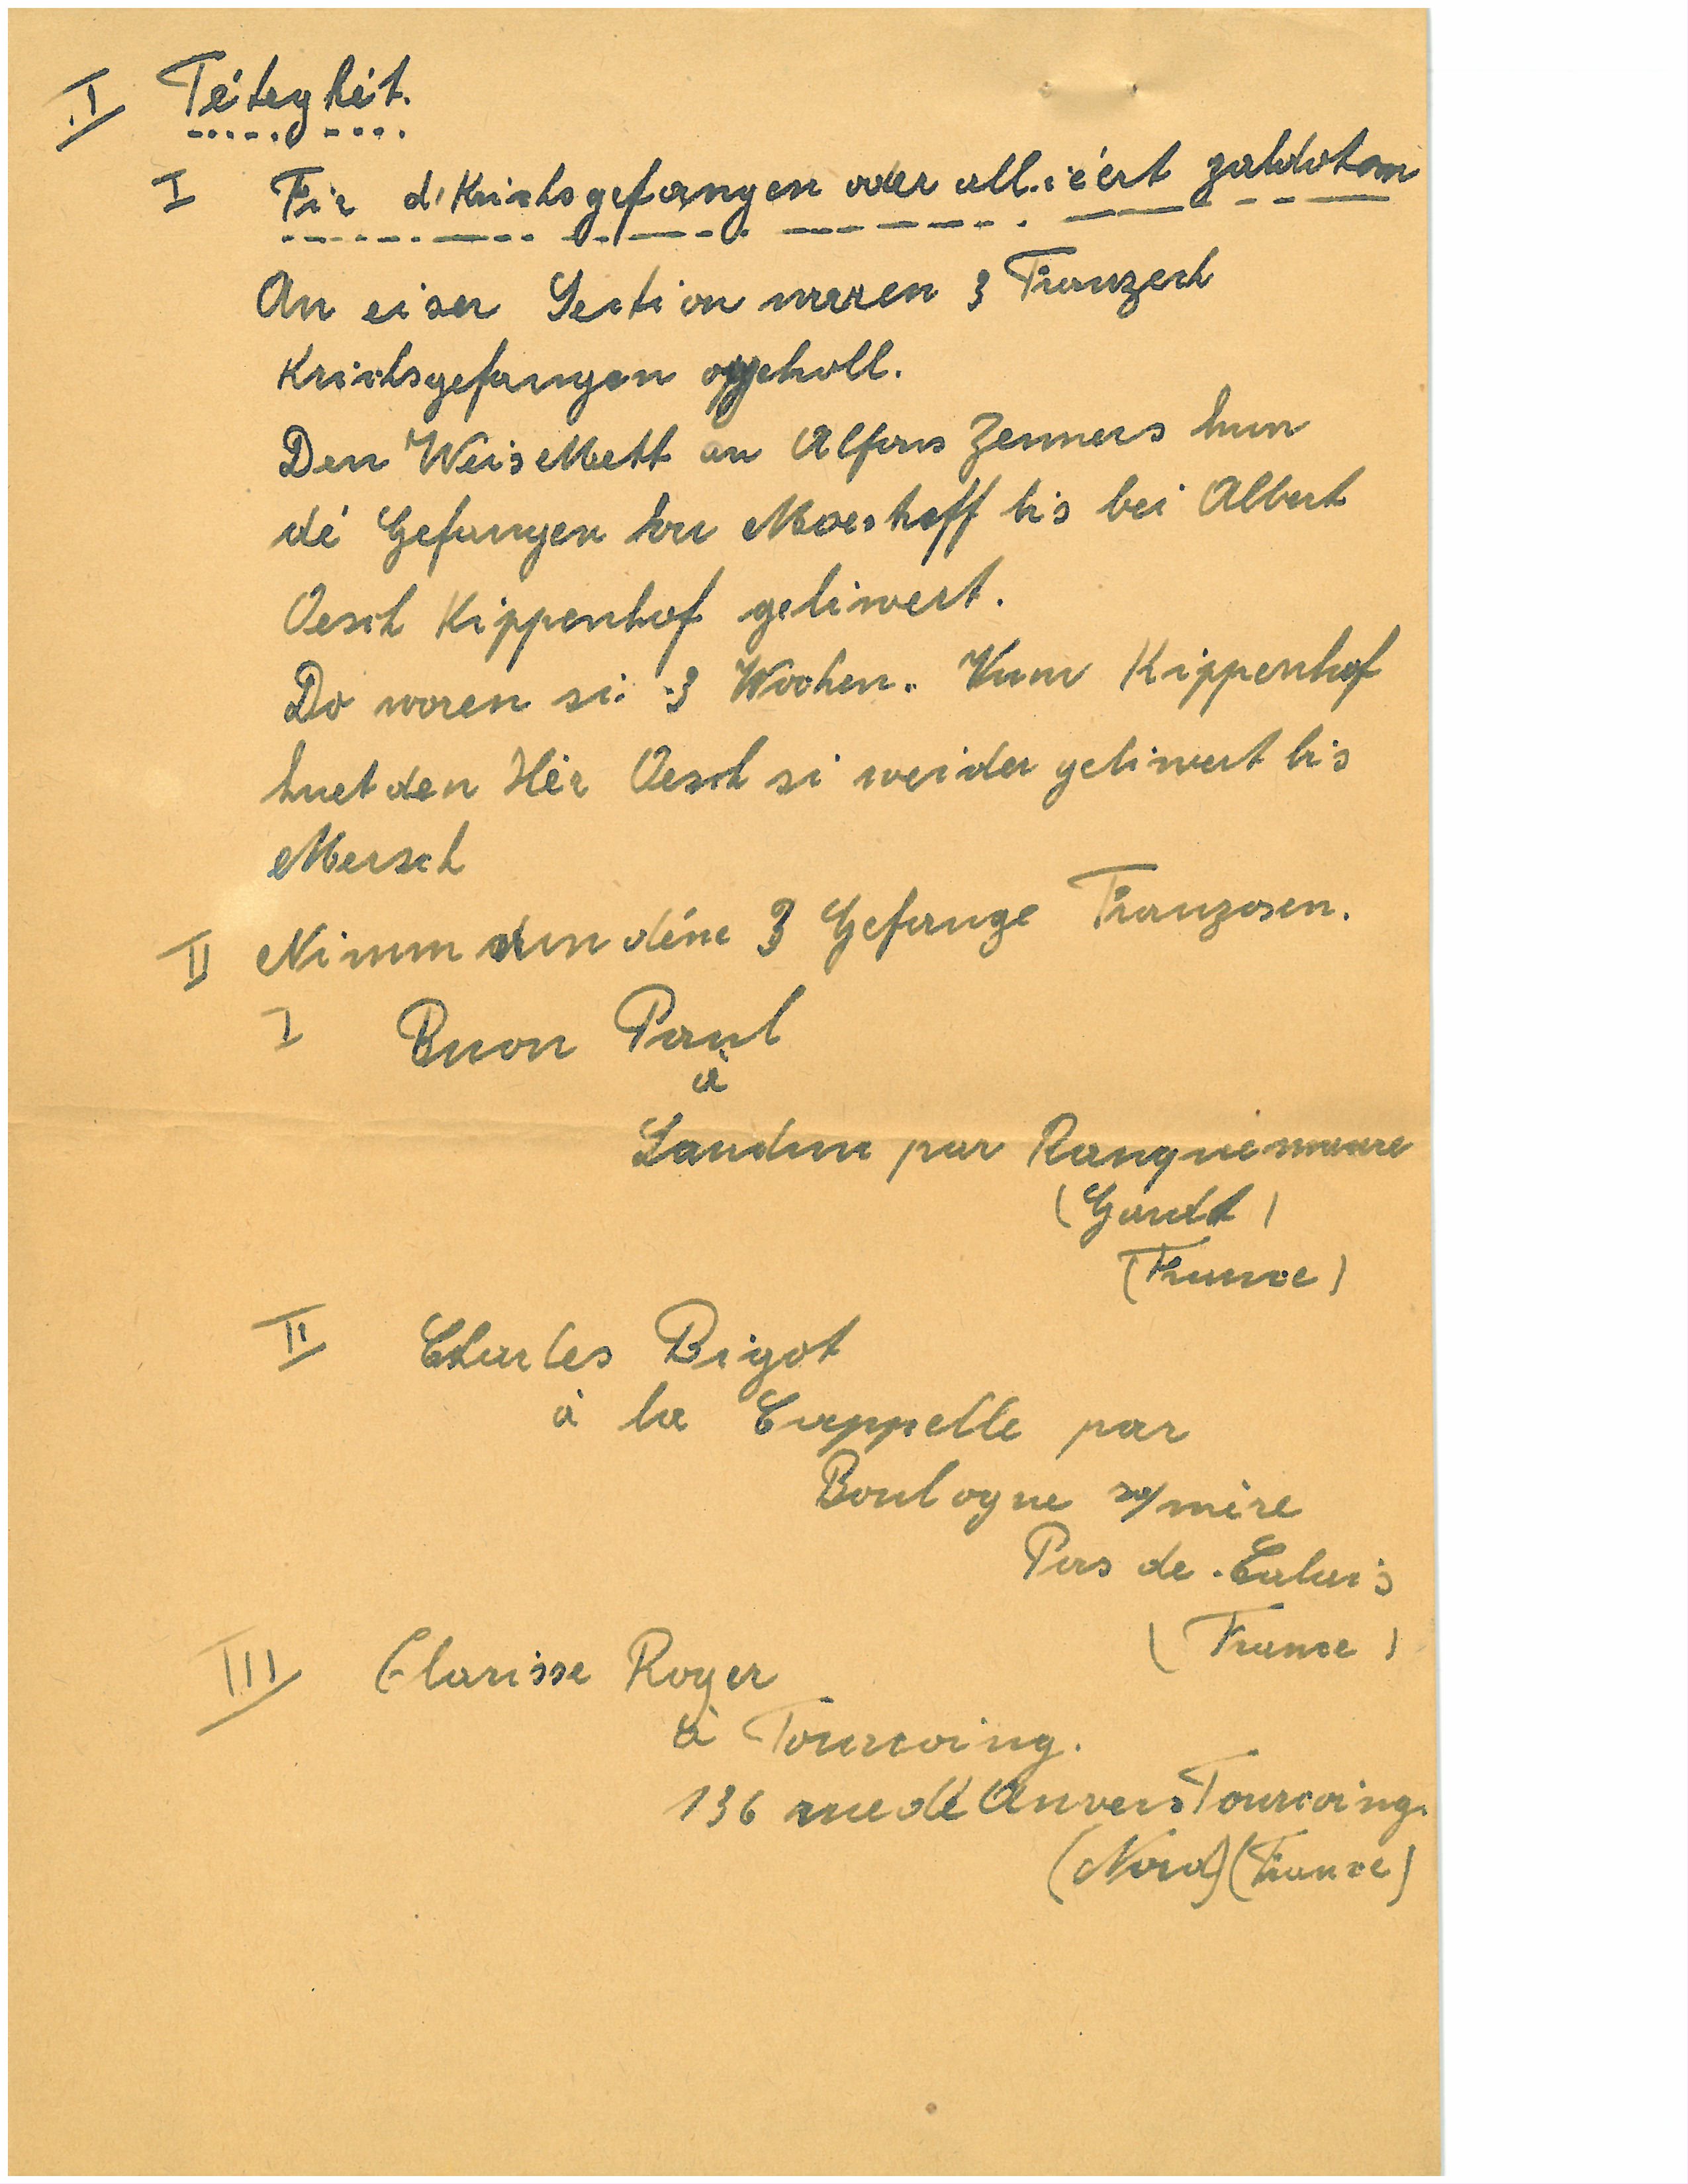 I Téteghét.
I Fir d'Krichsgefangen oder alliéert zaldoten
An eiser Section waren 3 Franzesch
Krichsgefangen opgeholl.
Den Weis Mett an Alfons Zenners hun
dé Gefangen vu Moeshoff bis bei Albert
Oesch Kippenhof geliwert.
Do woren si 3 Wochen. Vum Kippenhof
huet den Hèr Oesch si weider geliwert bis
Mersch
II Nimm vun déne 3 Gefange Franzosen.
I Buon Paul
à
Laudun par Ranquemaure
(Gardt)
(France)
II Charles Bigot
à la Cappelle par
Boulogne s/mère
Pas de-Calais
(France)
III Clarisse Roger
à Tourcoing.
136 rue dé Anvers Tourcoing.
(Nord) (France)